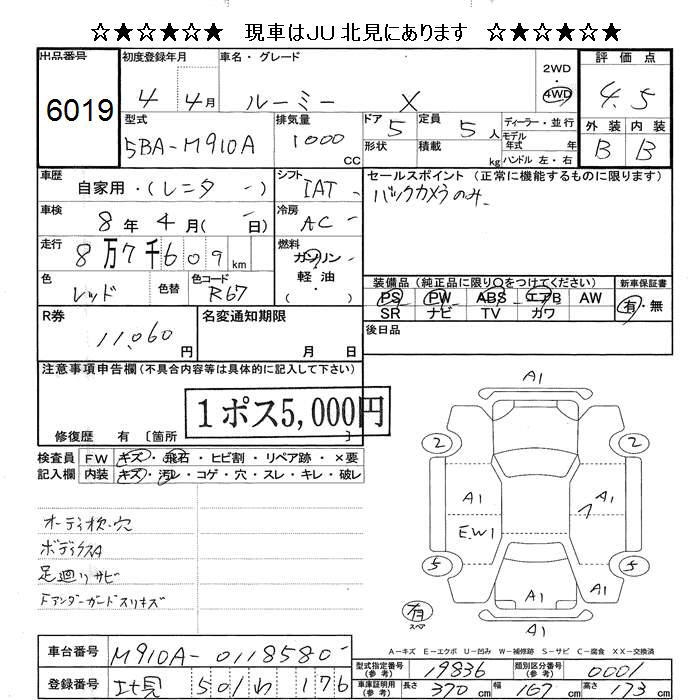 ☆★☆★☆★ 現車はJU北見にあります ☆★☆★☆★
出品番号 初度登録年月 車名・グレード 2WD 4WD 評価点
6019 4 4月 ルーミー X 4.5
型式 5BA-M910A 排気量 1000 CC ドア 5 定員 5人 ディーラー・並行 外装 内装
形状 積載 kg モデル年式 年式 ハンドル 左・右 B B
車歴 自家用・(レンタ ー) シフト IAT セールスポイント (正常に機能するものに限ります)
車検 8年 4月( 日) 冷房 AC バックカメラのみ
走行 8万7千609km 燃料 ガソリン・軽油・( )
色 レッド 色替 色コード R67 装備品 (純正品に限り○をつけてください) 新車保証書
PS PW ABS エアB AW 有・無
SR ナビ TV カワ
R券 11,060円 名変通知期限 月 日 後日品
注意事項申告欄(不具合内容等は具体的に記入して下さい)
1ポス5,000円
修復歴 有 〔箇所
検査員 FW キズ・飛石・ヒビ割・リペア跡・×要
記入欄 内装 キズ・汚レ・コゲ・穴・スレ・キレ・破レ
オーディオ枕・穴
ボディクスA
足廻リサビ
Fアンダーガードスリキズ
A1
2 2
A1 A1
E.W1
5 5
A1 A1
有 スペア
A1
A-キズ E-エクボ U-凹み W-補修跡 S-サビ C-腐食 XX-交換済
車台番号 M910A-0118580
型式指定番号(参考) 19836 類別区分番号(参考) 0001
登録番号 北見 501 わ 176
車庫証明用(参考) 長さ 370cm 幅 167cm 高さ 173cm